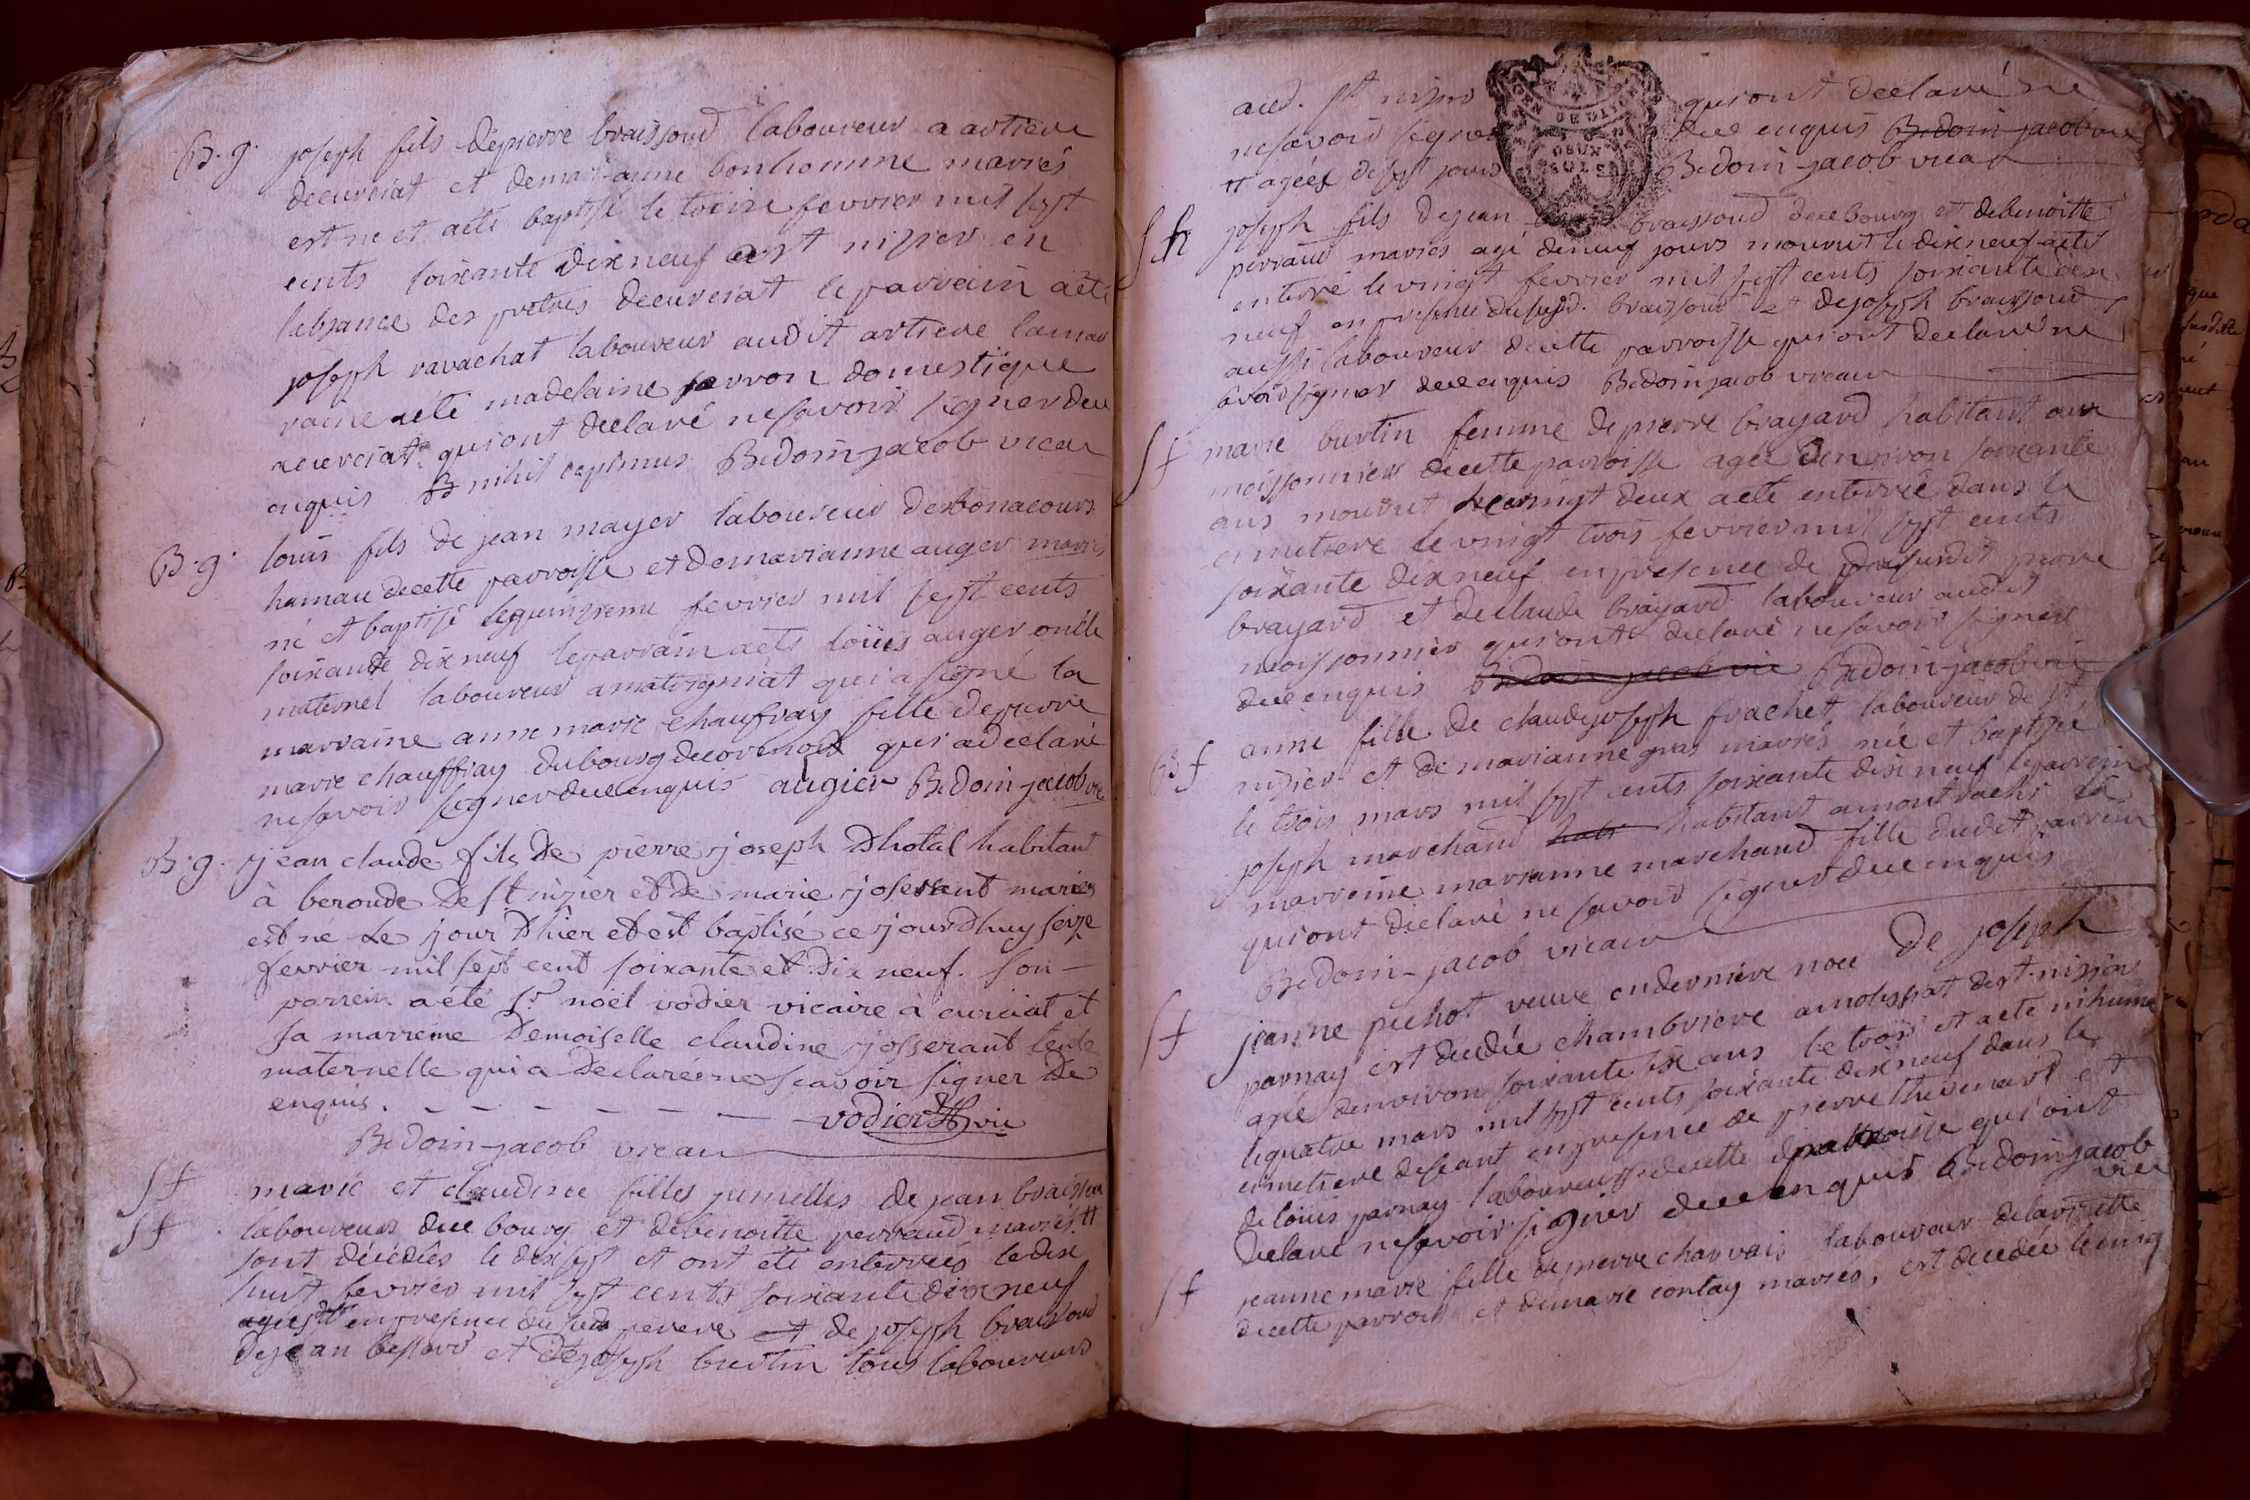 B. g. joseph fils depierre braissoud laboureur a artieve
decurciat et demarianne bonhomme mariés
est né et aété baptisé le treize fevrier mil sept
cents soixante dixneuf a st nizier en
labsance des pretres decurciat leparrain aété
joseph ravachat laboureur audit artieve lamar
raine aété madelaine ferron domestique
acurciat qui ont declaré nesavoir signer deu
enquis nihil Bedoin-jacob vicai
B. g. louis fils de jean mayer laboureur desbonacours
hamau decette parroisse et demarianne auger mariés
né et baptisé lequinzieme fevrier mil sept cents
soixante dixneuf leparrain aété louis auger oncle
maternel laboureur amatorgniat qui a signé la
marraine anne marie chaufray fille depierre
marie chauffray dubourg decormoz qui adeclaré
nesavoir signer deuenquis augier Bedoin-jacob vic
B. g. jean claude fils de pierre joseph Dhotal habitant
à beronde de st nizier et de marie josserant mariés
est né le jour Dhier et est baptisé ce jourdhuy seize
fevrier mil sept cent soixante et dix neuf. son
parrein a été sr noël vodier vicaire à curciat et
sa marreine Demoiselle claudine josserant tente
maternelle qui a declaré ne scavoir signer de
enquis. - - - - - - vodier vic
Bedoin-jacob vicau
S f marie et claudine filles jumelles de jean braissou
S f laboureur deu bourg et debenoitte perraud mariés #
sont décédées le dixsept et ont été enterrées ledix
huit fevrier mil sept cents soixante dixneuf
enpresence du sud perere et de joseph braissoud
dejean bessard et de joseph burtin tous laboureurs
aud. st nizier qui ont declaré ne
nesavoir signer deu enquis Bedoin-jacob vic
# agées desept jours Bedoin-jacob vicau
S f joseph fils dejean braissoud deubourg et debenoitte
perraud mariés agé deneuf jours mourut ledixneuf aété
enterré levingt fevrier mil sept cents soixante dix
neuf enpresence dususd. braissoud et dejoseph braissoud
aussi laboureur decette parroisse qui ont declaré ne
savoir signer deuenquis Bedoin-jacob vicau
S f marie burtin femme depierre brayard habitant aux
moissonnier decette parroisse agée denviron soixante
ans mourut levingt deux aété enterrée dans le
cimetiere levingt trois fevrier mil sept cents
soixante dixneuf enpresence de susdit pierre
brayard et declaude brayard laboureur audit
moissonnier qui ont declaré nesavoir signer
deuenquis Bedoin-jacob vic Bedoin-jacob vic
B f anne fille de claudejoseph frachet laboureur de st
nizier et de marianne gras mariés née et baptizée
le trois mars mil sept cents soixante dixneuf leparrein
joseph marchand habi habitant amontrachi la
marreine marianne marchand fille dudit parrein
qui ont declaré ne savoir signer deuenquis
Bedoin-jacob vicau
S f jeanne pichot veuve enderniere noce de joseph
parnay est decedée chambriere amolissiat de st-nizier
agée denviron soixante six ans le trois et aété inhumée
lequatre mars mil sept cents soixante dixneuf dans le
cimetiere disant enpresence de pierre thevenard et
de louis parnay laboureurs decette parroisse qui ont
declaré nesavoir signer deu enquis Bedoin-jacob
vic
S f jeanne marie fille de pierre charvais laboureur delaviette
decette parroisse et demarie contay mariés, est decedée lecinq